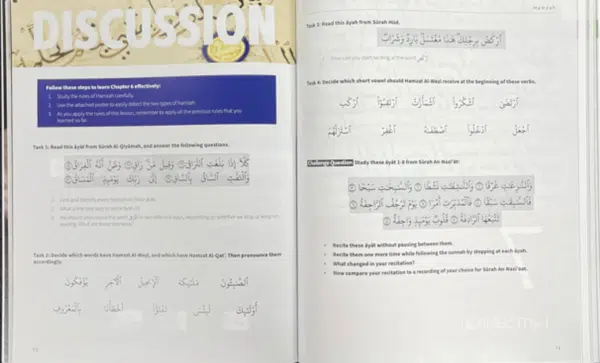 DISCUSSION
Follow these steps to learn Chapter 6 effectively:
1. Study the rules of Hamzah carefully.
2. Use the attached poster to easily detect the two types of hamzah.
3. As you apply the rules of this lesson, remember to apply all the previous rules that you
learned so far.
Task 1: Read this āyah from Sūrah Al-Qiyāmah, and answer the following questions.
كَلَّا إِذَا بَلَغَتِ التَّرَاقِيَ وَقِيلَ مَنْ رَاقٍ وَظَنَّ أَنَّهُ الْفِرَاقُ
وَالْتَفَّتِ السَّاقُ بِالسَّاقِ إِلَىٰ رَبِّكَ يَوْمَئِذٍ الْمَسَاقُ
Task 2: Decide which words have Hamzat Al-Waṣl, and which have Hamzat Al-Qaṭʿ. Then pronounce them
accordingly.
مَلَٰٓئِكَة الْإِنجِيلَ الْآخِرِ يُؤْفَكُونَ
أُوْلَٰٓئِكَ لَيْسَ أَخْطَأْنَا بِالْمَعْرُوفِ
Hamzah
Task 3: Read this āyah from Sūrah Ṣād.
ارْكُضْ بِرِجْلِكَ هَٰذَا مُغْتَسَلٌ بَارِدٌ وَشَرَابٌ
Task 4: Decide which short vowel should Hamzat Al-Waṣl receive at the beginning of these verbs.
ارْتَضَىٰ اشْكُرُوا اشْمَأَزَّتْ ارْكَب
اجْعَلْ ادْخُلُوا اصْطَفَىٰهُ اغْفِرْ
Challenge Question: Study these āyāt 1-8 from Sūrah An-Naziʿāt:
وَالنَّٰزِعَٰتِ غَرْقًا وَالنَّٰشِطَٰتِ نَشْطًا وَالسَّٰبِحَٰتِ سَبْحًا
فَالسَّٰبِقَٰتِ سَبْقًا فَالْمُدَبِّرَٰتِ أَمْرًا يَوْمَ تَرْجُفُ الرَّاجِفَةُ
تَتْبَعُهَا الرَّادِفَةُ قُلُوبٌ يَوْمَئِذٍ وَاجِفَةٌ
• Recite these āyāt without pausing between them.
• Recite them one more time while following the sunnah by stopping at each āyah.
• What changed in your recitation?
• Now compare your recitation to a recording of your choice for Sūrah An-Naziʿāt.